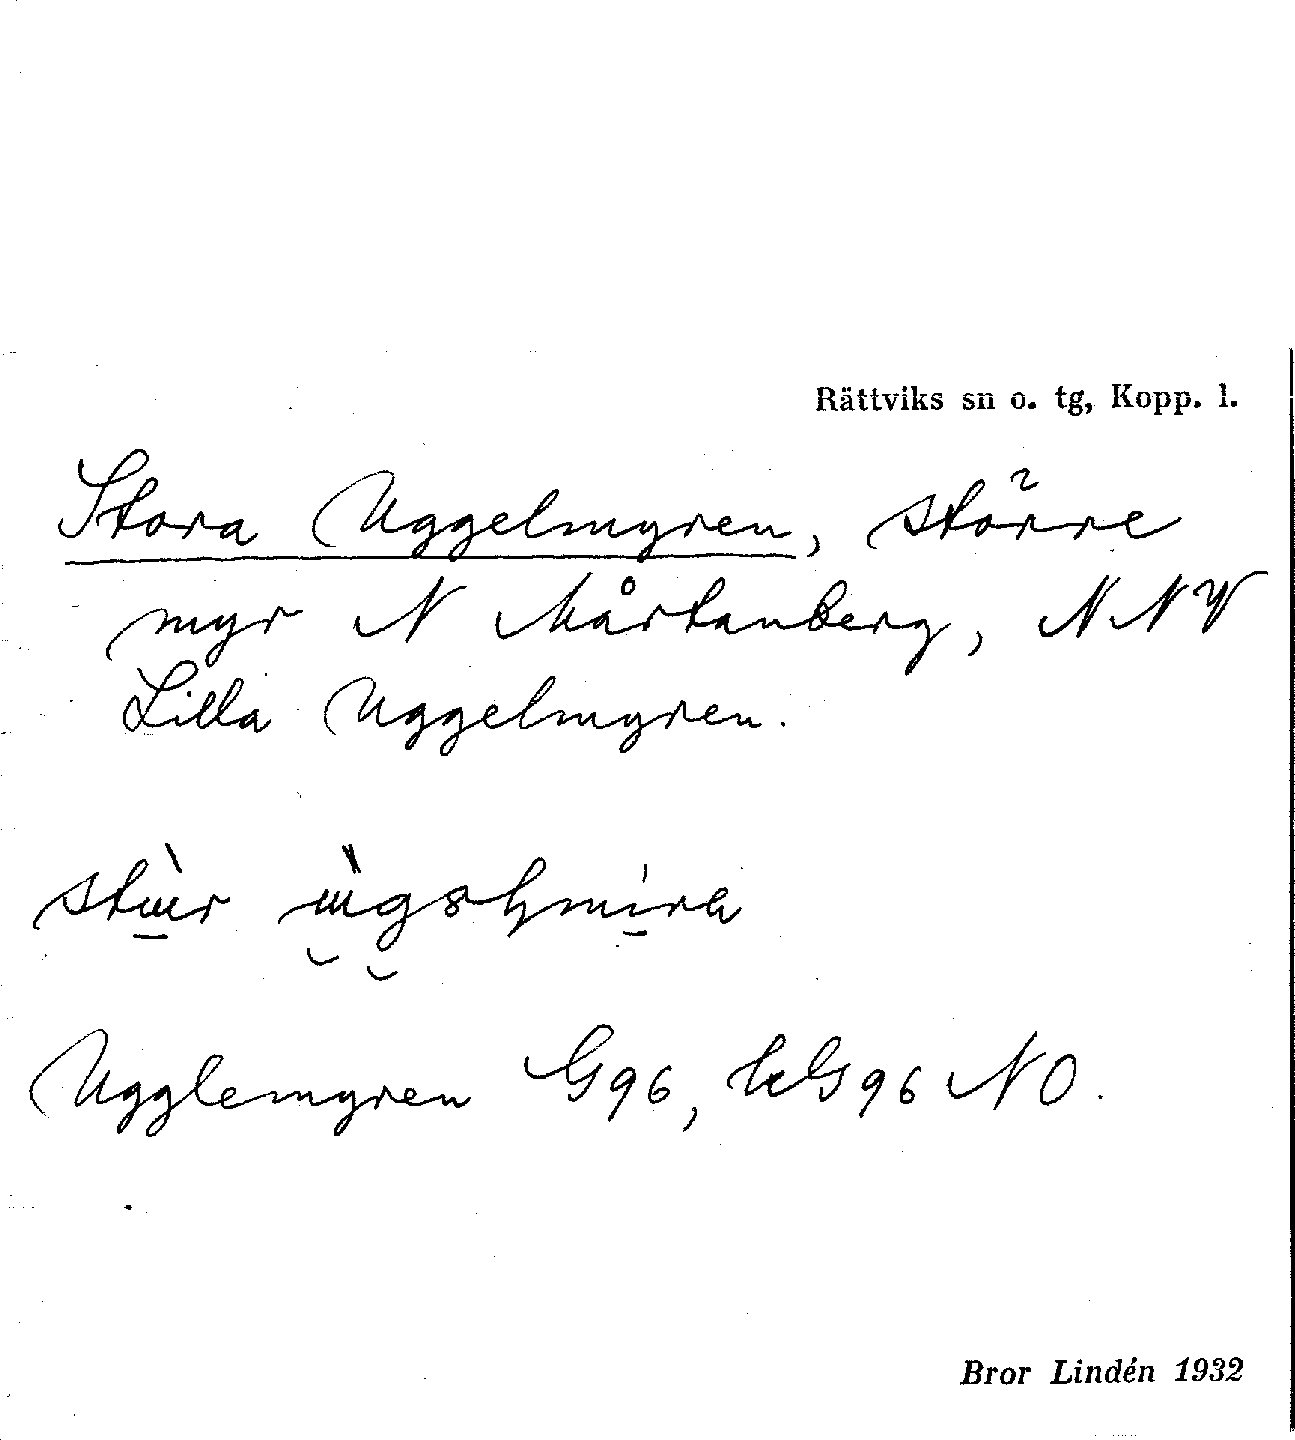 Rättviks sn o. tg, Kopp. l.
Stora Uggelmyren, större
myr N Mårtanberg, NNV
Lilla Uggelmyren.
Ugglemyren G96, kG96 NO.
Bror Lindén 1932